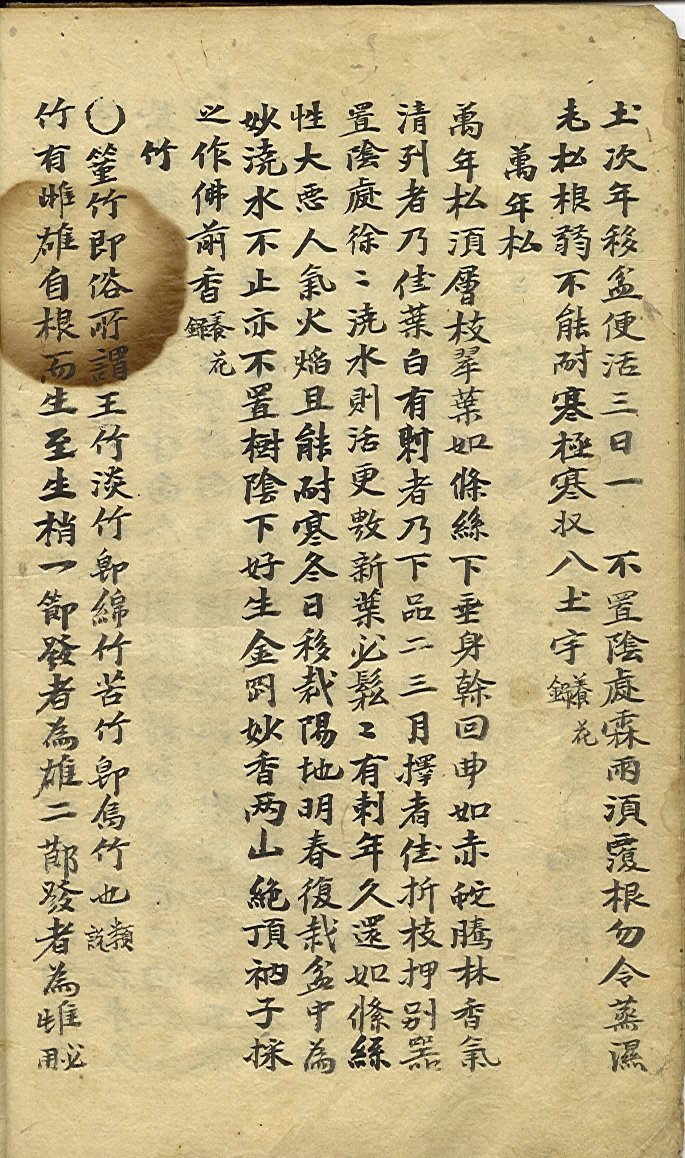 土次年移盆便活三日一 不置陰處霖雨須覆根勿令蒸濕
老松根弱不能耐寒極寒収入土宇 養花錄
萬年松
萬年松須層枝翠葉如絛絲下垂身幹回曲如赤蛇騰林香氣
清列者乃佳葉白有刺者乃下品二三月擇者佳折枝押別器
置陰處徐〻澆水則活更敷新葉必鬆〻有刺年久還如絛絲
性大悪人氣火焰且能耐寒冬日移栽陽地明春復栽盆中為
妙澆水不止亦不置樹陰下好生金罡妙香两山絶頂衲子採
之作佛前香 養花錄
竹
〇篁竹即俗所謂王竹淡竹即綿竹苦竹即烏竹也 類說
竹有雌雄自根而生至生梢一節發者為雄二節發者為雌 必用